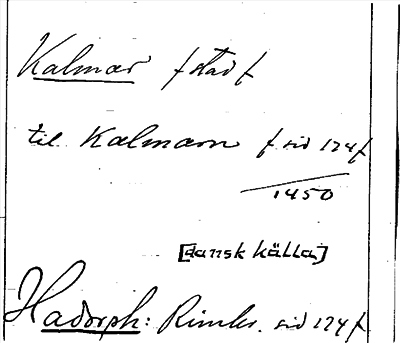 Kalmar f stad f
til Kalmarn f. sid 124 f
1450
[dansk källa]
Hadorph: Rimkr. sid 124 f